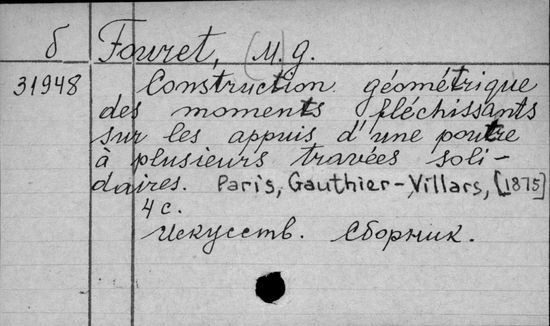 б Fouret, (M.) g.
31948 Construction géométrique
des moments fléchissants
sur les appuis d'une poutre
à plusieurs travées soli-
daires. Paris, Gauthier-Villars, [1875]
4 с.
Искусств. Сборник.